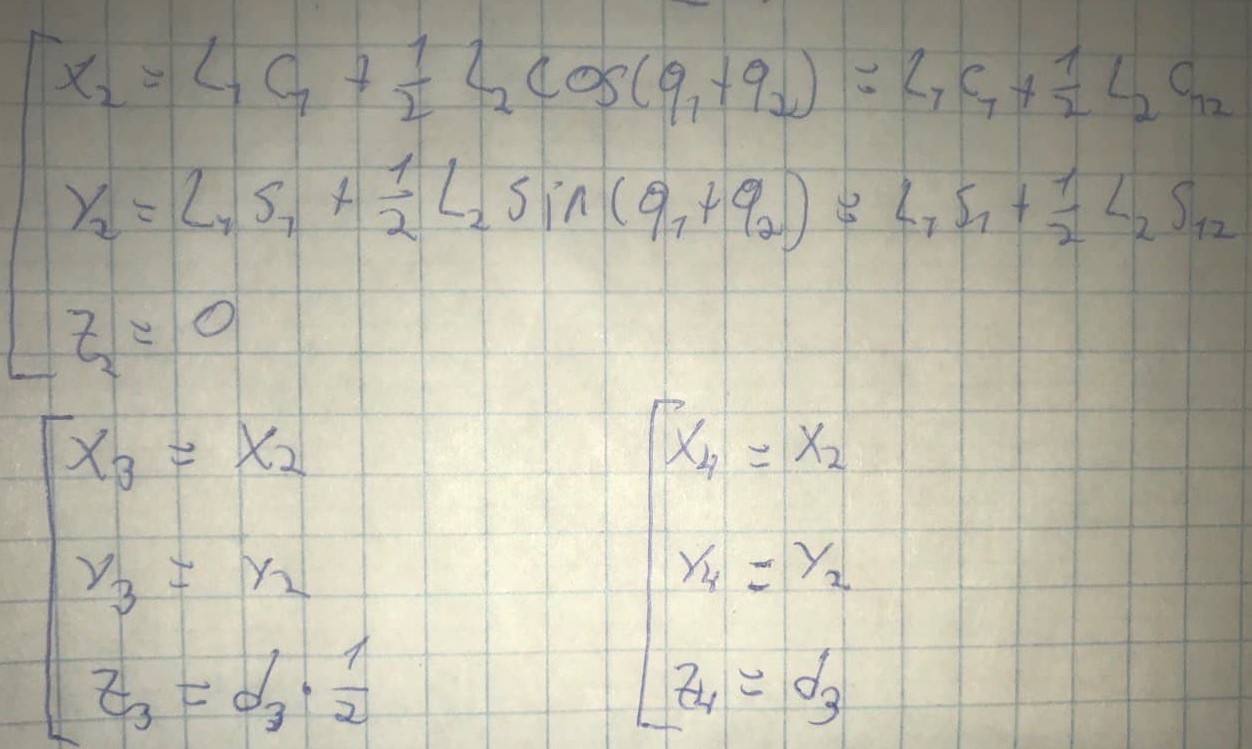 X₂ = L₁ C₁ + 1/2 L₂ cos(q₁+q₂) = L₁ C₁ + 1/2 L₂ C₁₂
Y₂ = L₁ S₁ + 1/2 L₂ sin(q₁+q₂) = L₁ S₁ + 1/2 L₂ S₁₂
Z₂ = 0
X₃ = X₂
Y₃ = Y₂
Z₃ = d₃ · 1/2
X₄ = X₂
Y₄ = Y₂
Z₄ = d₃